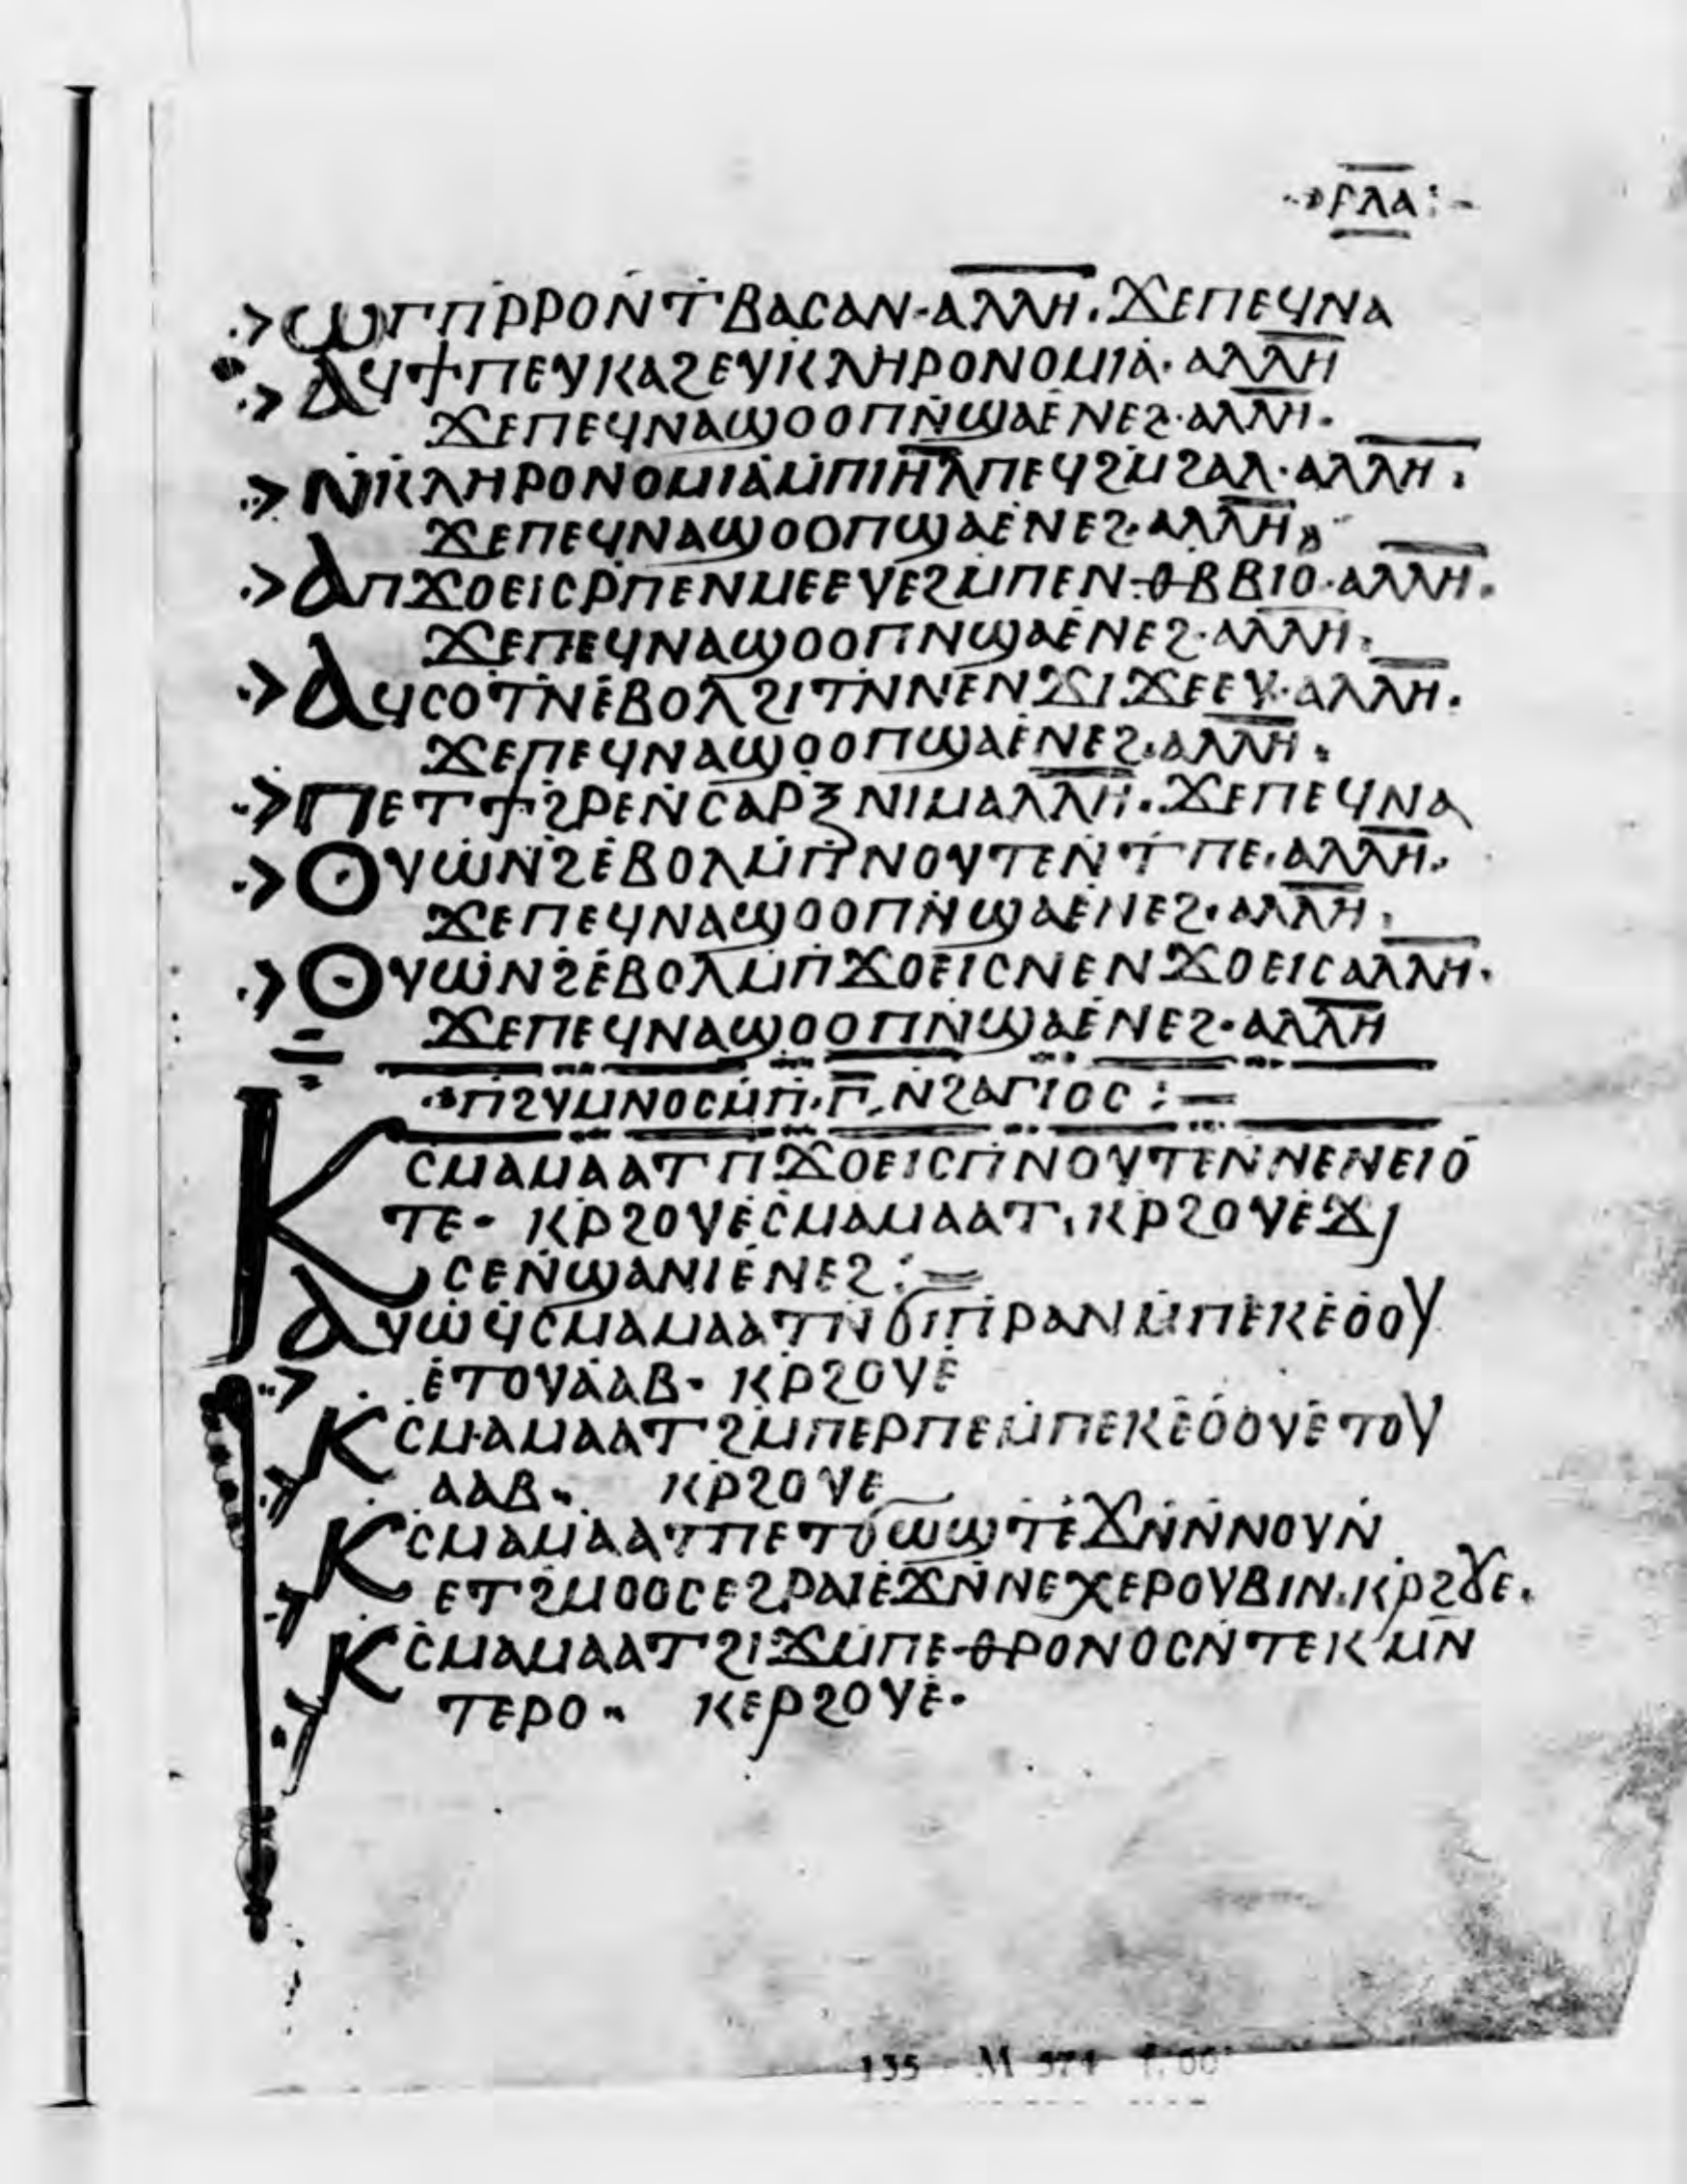 ⲣⲗⲁ
ⲱⲅ ⲡⲣ̄ⲣⲟ ⲛ̇ⲧⲃⲁⲥⲁⲛ· ⲁⲗⲗⲏ̅· ϫⲉⲡⲉϥⲛⲁ
ⲁϥϯⲡⲉⲩⲕⲁϩⲉⲩⲕⲗⲏⲣⲟⲛⲟⲙⲓⲁ· ⲁⲗⲗⲏ̅
ϫⲉⲡⲉϥⲛⲁϣⲟⲟⲡⲛ̇ϣⲁⲉ̇ⲛⲉϩ· ⲁⲗⲗⲏ̅·
ⲛ̇ⲕⲗⲏⲣⲟⲛⲟⲙⲓⲁⲙ̇ⲡⲓⲏ̅ⲗ̅ⲡⲉϥϩⲙ̇ϩⲁⲗ· ⲁⲗⲗⲏ̅·
ϫⲉⲡⲉϥⲛⲁϣⲟⲟⲡϣⲁⲉ̇ⲛⲉϩ· ⲁⲗⲗⲏ̅
ⲁⲡϫⲟⲉⲓⲥⲣ̇ⲡⲉⲛⲙⲉⲉⲩⲉϩⲙ̇ⲡⲉⲛⲑⲃⲃⲓⲟ· ⲁⲗⲗⲏ̅·
ϫⲉⲡⲉϥⲛⲁϣⲟⲟⲡⲛϣⲁⲉ̇ⲛⲉϩ· ⲁⲗⲗⲏ̅·
ⲁϥⲥⲟⲧⲛ̇ⲉ̇ⲃⲟⲗϩⲓⲧⲛ̇ⲛⲉⲛϫⲓϫⲉⲉⲩ· ⲁⲗⲗⲏ̅·
ϫⲉⲡⲉϥⲛⲁϣⲟⲟⲡϣⲁⲉ̇ⲛⲉϩ· ⲁⲗⲗⲏ̅·
ⲡⲉⲧϯϩⲣⲉⲛ̇ⲥⲁⲣⲝⲛⲓⲙⲁⲗⲗⲏ̅· ϫⲉⲡⲉϥⲛⲁ
ⲟⲩⲱⲛ̇ϩⲉ̇ⲃⲟⲗⲙ̇ⲡ̇ⲛⲟⲩⲧⲉⲛ̇ⲧ̇ⲡⲉ· ⲁⲗⲗⲏ̅·
ϫⲉⲡⲉϥⲛⲁϣⲟⲟⲡⲛ̇ϣⲁⲉ̇ⲛⲉϩ· ⲁⲗⲗⲏ̅·
ⲟⲩⲱⲛ̇ϩⲉ̇ⲃⲟⲗⲙ̇ⲡϫⲟⲉⲓⲥⲛⲉⲛϫⲟⲉⲓⲥⲁⲗⲗⲏ̅·
ϫⲉⲡⲉϥⲛⲁϣⲟⲟⲡⲛϣⲁⲉ̇ⲛⲉϩ· ⲁⲗⲗⲏ̅
ⲡϩⲩⲙⲛⲟⲥⲙ̇ⲡ·ⲅ̅·ⲛ̇ϩⲁⲅⲓⲟⲥ :=
ⲕⲥⲙⲁⲙⲁⲁⲧⲡϫⲟⲉⲓⲥⲡⲛⲟⲩⲧⲉⲛ̇ⲛⲉⲛⲉⲓⲟ
ⲧⲉ· ⲕⲣ̇ϩⲟⲩⲉ̇ⲥⲙⲁⲙⲁⲁⲧ· ⲕⲣ̇ϩⲟⲩⲉ̇ϫⲓ
ⲥⲉⲛ̇ϣⲁⲛⲓⲉ̇ⲛⲉϩ :=
ⲁⲩⲱϥ̇ⲥⲙⲁⲙⲁⲁⲧⲛ̇ϭⲓⲡ̇ⲣⲁⲛⲙ̇ⲡⲉⲕⲉ̇ⲟⲟⲩ
ⲉ̇ⲧⲟⲩⲁⲁⲃ· ⲕⲣ̇ϩⲟⲩⲉ̇
ⲕⲥⲙⲁⲙⲁⲁⲧϩⲙ̇ⲡⲉⲣⲡⲉⲙ̇ⲡⲉⲕⲉ̇ⲟⲟⲩⲉ̇ⲧⲟⲩ
ⲁⲁⲃ· ⲕⲣ̇ϩⲟⲩⲉ
ⲕⲥⲙⲁⲙⲁⲁⲧⲡⲉⲧϭⲱϣⲧⲉ̇ϫⲛ̇ⲛ̇ⲛⲟⲩⲛ̇
ⲉⲧϩⲙⲟⲟⲥⲉϩⲣⲁⲓⲉ̇ϫⲛ̇ⲛⲉⲭⲉⲣⲟⲩⲃⲓⲛ· ⲕⲣ̇ϩⲟⲩⲉ·
ⲕⲥⲙⲁⲙⲁⲁⲧϩⲓϫⲙ̇ⲡⲉⲑⲣⲟⲛⲟⲥⲛ̇ⲧⲉⲕⲙⲛ̄
ⲧⲉⲣⲟ· ⲕⲉⲣϩⲟⲩⲉ̇·
135 M 574 f. 66